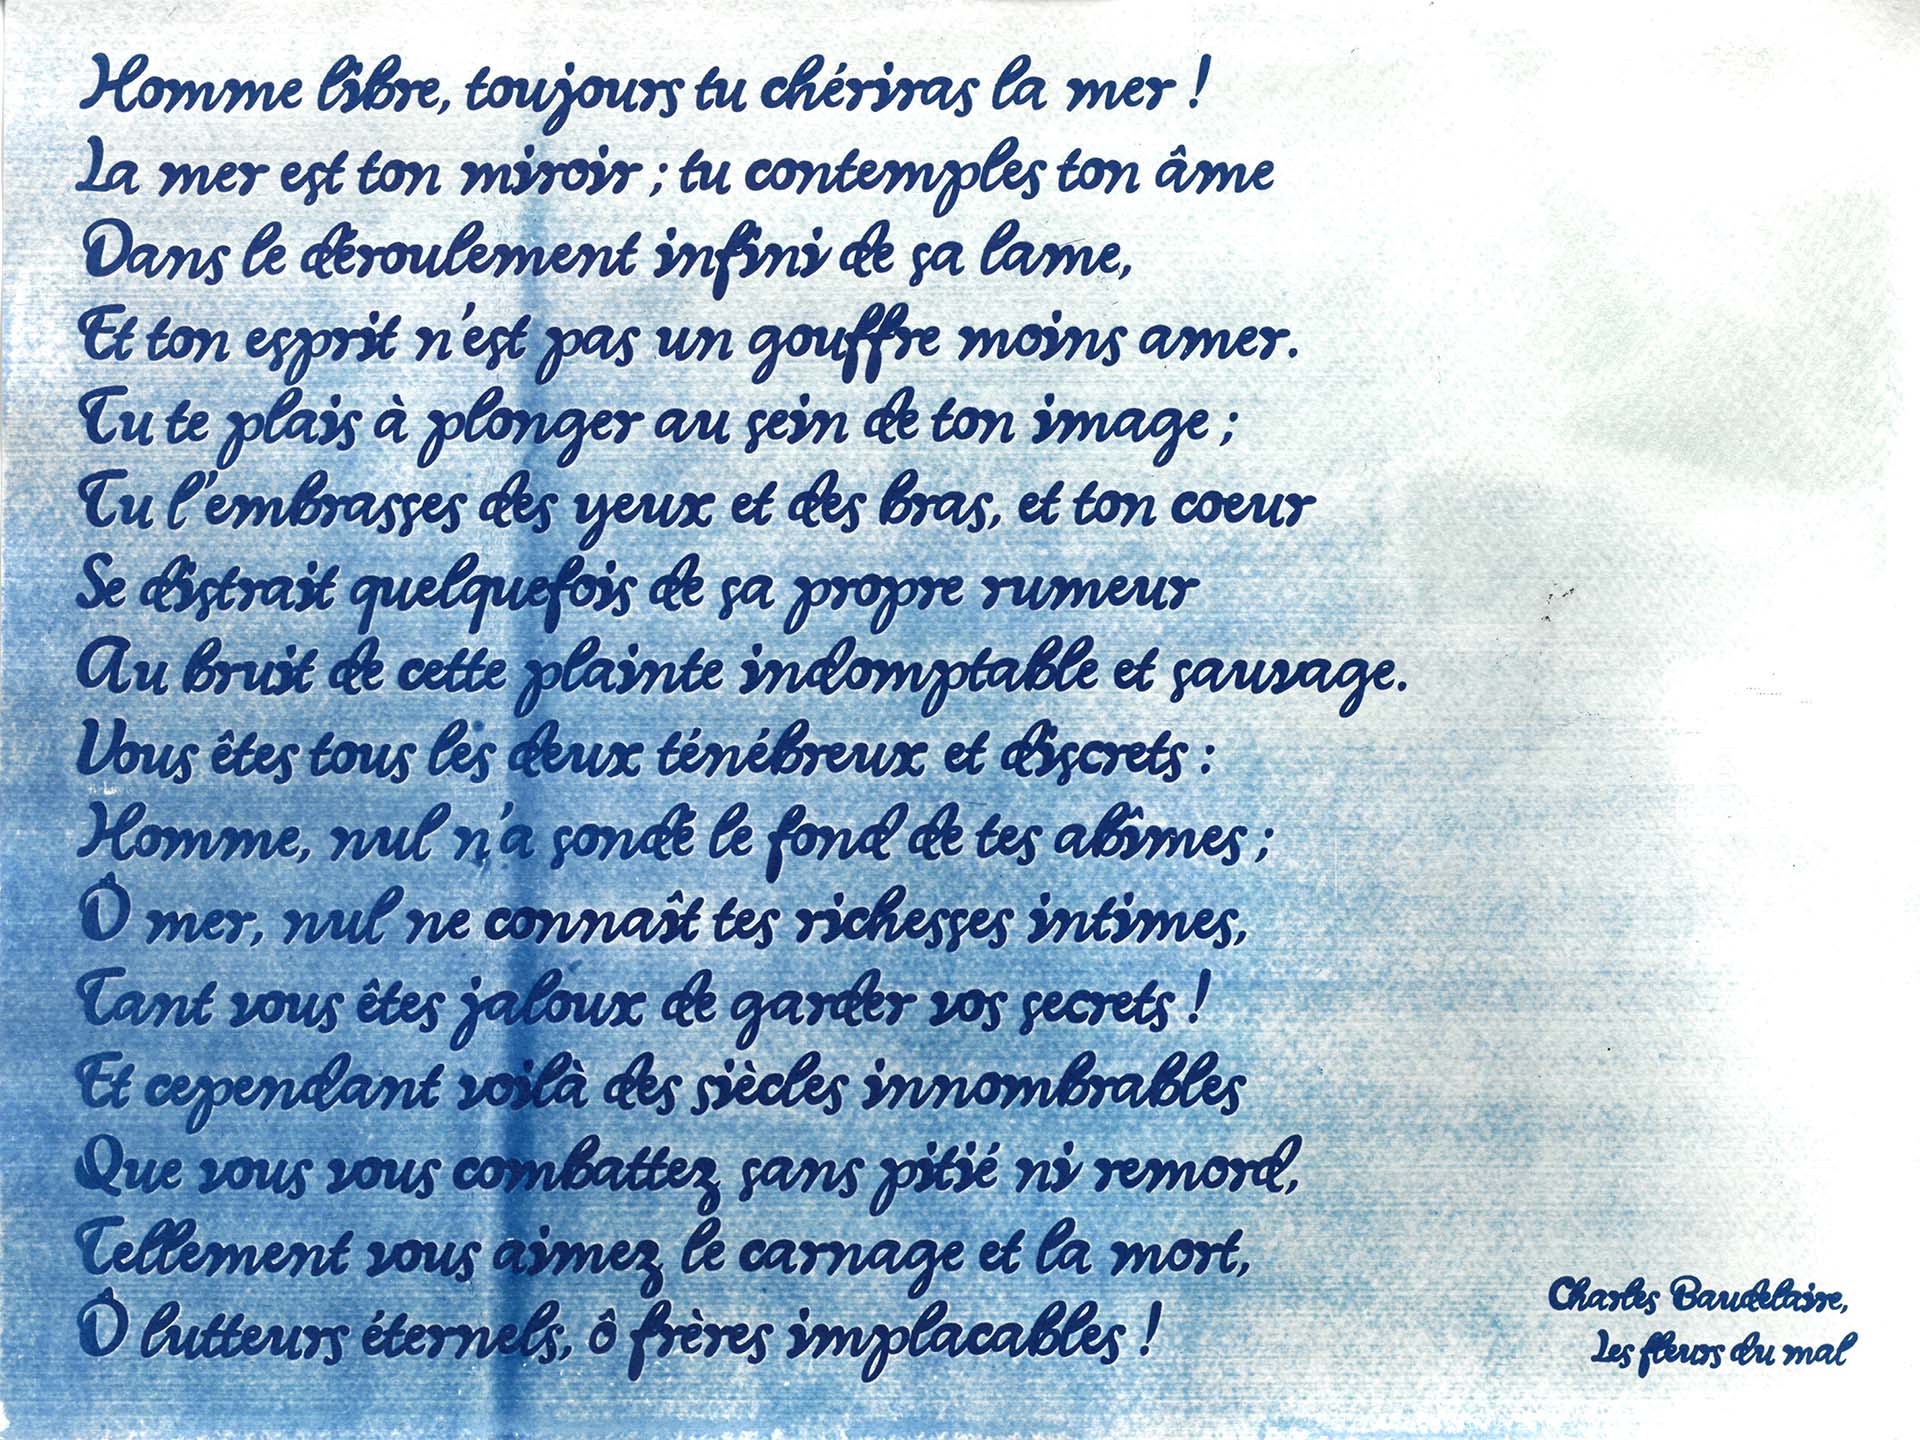 Homme libre, toujours tu chériras la mer !
La mer est ton miroir ; tu contemples ton âme
Dans le déroulement infini de sa lame,
Et ton esprit n'est pas un gouffre moins amer.
Tu te plais à plonger au sein de ton image ;
Tu l'embrasses des yeux et des bras, et ton coeur
Se distrait quelquefois de sa propre rumeur
Au bruit de cette plainte indomptable et sauvage.
Vous êtes tous les deux ténébreux et discrets :
Homme, nul n'a sondé le fond de tes abîmes ;
Ô mer, nul ne connaît tes richesses intimes,
Tant vous êtes jaloux de garder vos secrets !
Et cependant voilà des siècles innombrables
Que vous vous combattez sans pitié ni remord,
Tellement vous aimez le carnage et la mort,
Ô lutteurs éternels, ô frères implacables !
Charles Baudelaire,
Les fleurs du mal